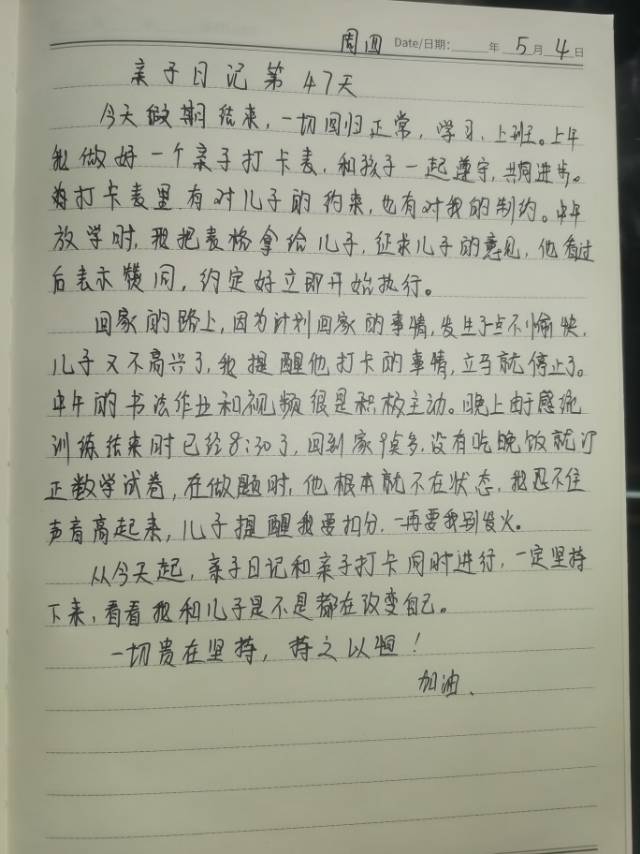 周四 Date/日期: 年 5 月 4 日
亲子日记第47天
今天假期结束,一切回归正常,学习、上班。上午
我做好一个亲子打卡表,和孩子一起遵守,共同进步。
打卡表里有对儿子的约束,也有对我的制约。中午
放学时,我把表格拿给儿子,征求儿子的意见,他看过
后表示赞同,约定好立即开始执行。
回家的路上,因为计划回家的事情,发生了点不愉快,
儿子又不高兴了,我提醒他打卡的事情,立马就停止了。
中午的书法作业和视频很是积极主动。晚上由于感统
训练结束时已经8:30了,回到家9点多,没有吃晚饭就订
正数学试卷,在做题时,他根本就不在状态,我忍不住
声音高起来,儿子提醒我要扣分,一再要我别发火。
从今天起,亲子日记和亲子打卡同时进行,一定坚持
下来,看看我和儿子是不是都在改变自己。
一切贵在坚持,持之以恒!
加油、